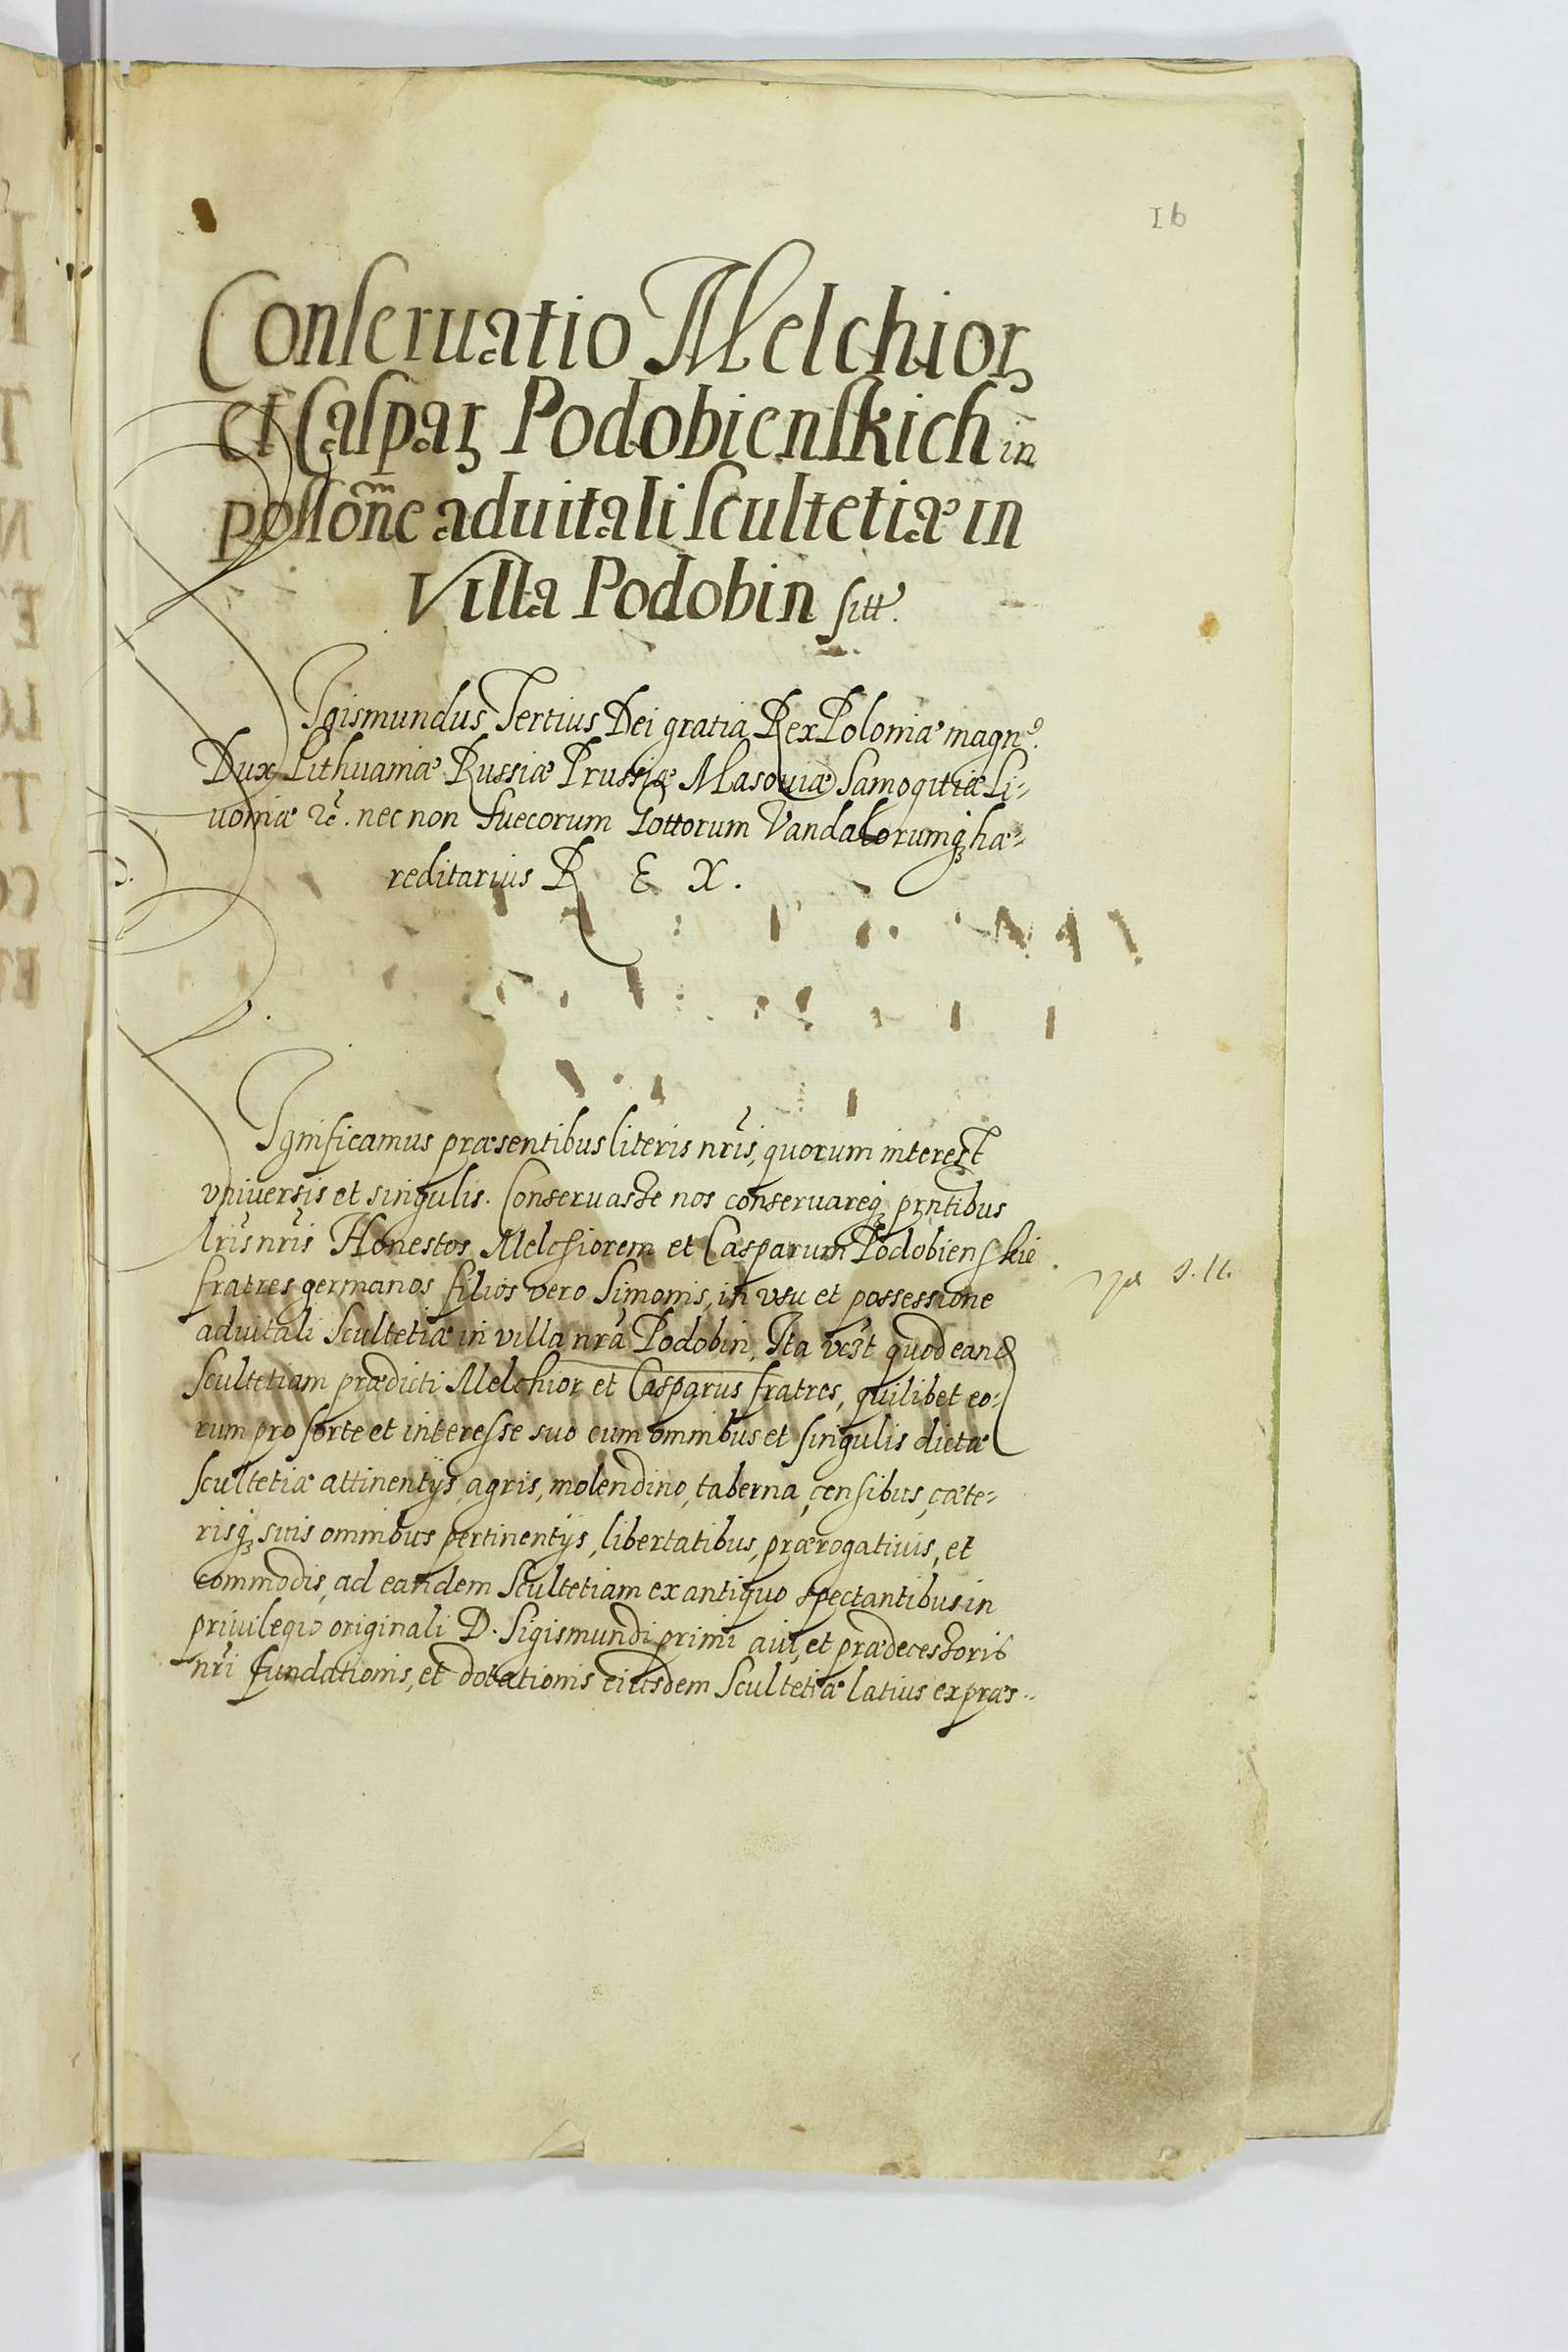 16
Conseruatio Melchioꝝ
et Caspaꝝ Podobienskich in
possoñe aduitali scultetiæ in
Villa Podobin sitt.
Sigismundus Tertius Dei gratia Rex Poloniæ magn9.
Dux Lithuaniæ Russiæ Prussiæ Masouiæ Samogitiæ Li-
uoniæ ꝛc̃. nec non Suecorum Gottorum Vandalorumqꝫ hæ-
reditarius R E X.
Significamus præsentibus literis nr̃is, quorum interest
vniversis et singulis. Conseruasse nos conseruareqꝫ prntibus
lr̃is nr̃is Honestos Melchiorem et Casparum Podobienskie
fratres germanos filios vero Simonis, in vsu et possessione
aduitali Scultetiæ in villa nrã Podobin, Ita vt quod eand
Scultetiam prædicti Melchior et Casparus fratres, quilibet eo-
rum pro sorte et interesse suo cum omnibus et singulis dictæ
scultetiæ attinentijs, agris, molendino, taberna, censibus, cæte-
risqꝫ suis omnibus pertinentijs, libertatibus, prærogatiuis, et
commodis, ad eandem Scultetiam ex antiquo spectantibus in
priuilegio originali D. Sigismundi primi aui, et prædecessoris
nr̃i fundationis, et dotationis eiusdem Scultetiæ latius expræs-